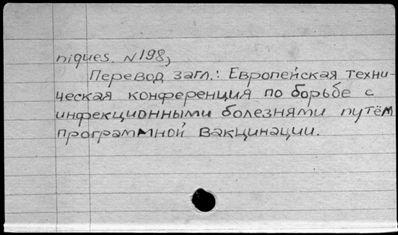 niques. N198,
Перевод загл.: Европейская техни-
ческая конференция по борьбе с
инфекционными болезнями путём
программной вакцинации.